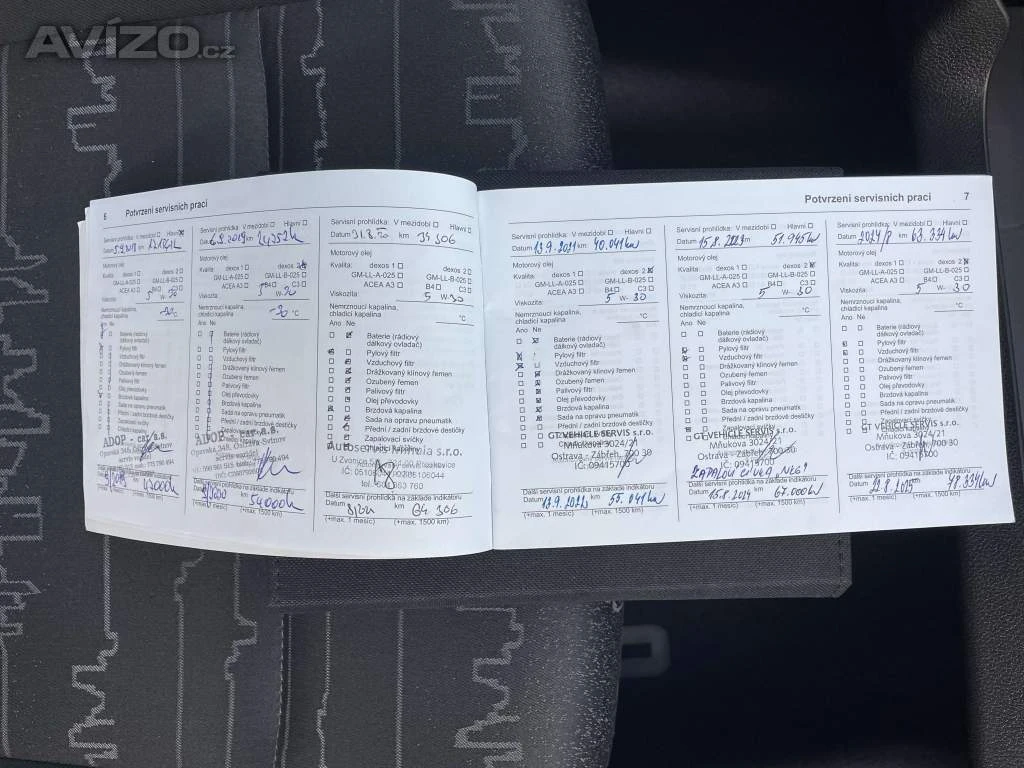 AVÍZO.cz
6 Potvrzení servisních prací
Servisní prohlídka: V mezidobí Hlavní
Datum km
Motorový olej
Kvalita: dexos 1 dexos 2
GM-LL-A-025 GM-LL-B-025
ACEA A3 B4 C3
Viskozita: 5 W-
Nemrznoucí kapalina,
chladicí kapalina
Ano Ne
Baterie (rádiový
dálkový ovladač)
Pylový filtr
Vzduchový filtr
Drážkovaný klínový řemen
Ozubený řemen
Palivový filtr
Olej převodovky
Brzdová kapalina
Sada na opravu pneumatik
Přední / zadní brzdové destičky
ADOP - car
Další servisní prohlídka na základě indikátoru
Datum km
(+max. 1 měsíc) (+max. 1500 km)
Servisní prohlídka: V mezidobí Hlavní
6.9.2019 km
Motorový olej
Kvalita: dexos 1 dexos 2
GM-LL-A-025 GM-LL-B-025
ACEA A3 B4 C3
Viskozita: 5 W-
Nemrznoucí kapalina,
chladicí kapalina -30 °C
Ano Ne
Baterie (rádiový
dálkový ovladač)
Pylový filtr
Vzduchový filtr
Drážkovaný klínový řemen
Ozubený řemen
Palivový filtr
Olej převodovky
Brzdová kapalina
Sada na opravu pneumatik
Přední / zadní brzdové destičky
ADOP - car
Další servisní prohlídka na základě indikátoru
Datum km
(+max. 1 měsíc) (+max. 1500 km)
Servisní prohlídka: V mezidobí Hlavní
Datum 31.8.20 km 34 306
Motorový olej
Kvalita: dexos 1 dexos 2
GM-LL-A-025 GM-LL-B-025
ACEA A3 B4 C3
Viskozita: 5 W-30
Nemrznoucí kapalina,
chladicí kapalina °C
Ano Ne
Baterie (rádiový
dálkový ovladač)
Pylový filtr
Vzduchový filtr
Drážkovaný klínový řemen
Ozubený řemen
Palivový filtr
Olej převodovky
Brzdová kapalina
Sada na opravu pneumatik
Přední / zadní brzdové destičky
Zapalovací svíčky
s.r.o.
Další servisní prohlídka na základě indikátoru
Datum km 64 306
(+max. 1 měsíc) (+max. 1500 km)
Potvrzení servisních prací 7
Servisní prohlídka: V mezidobí Hlavní
Datum 13.9.2021 km 40.041km
Motorový olej
Kvalita: dexos 1 dexos 2
GM-LL-A-025 GM-LL-B-025
ACEA A3 B4 C3
Viskozita: 5 W-30
Nemrznoucí kapalina,
chladicí kapalina °C
Ano Ne
Baterie (rádiový
dálkový ovladač)
Pylový filtr
Vzduchový filtr
Drážkovaný klínový řemen
Ozubený řemen
Palivový filtr
Olej převodovky
Brzdová kapalina
Sada na opravu pneumatik
Přední / zadní brzdové destičky
GT VEHICLE SERVIS s.r.o.
Mňukova 3024/21
Ostrava - Zábřeh, 700 30
Další servisní prohlídka na základě indikátoru
Datum 13.9.2022 km 55.041km
(+max. 1 měsíc) (+max. 1500 km)
Servisní prohlídka: V mezidobí Hlavní
Datum 15.8.2023 km 51.945km
Motorový olej
Kvalita: dexos 1 dexos 2
GM-LL-A-025 GM-LL-B-025
ACEA A3 B4 C3
Viskozita: 5 W-30
Nemrznoucí kapalina,
chladicí kapalina °C
Ano Ne
Baterie (rádiový
dálkový ovladač)
Pylový filtr
Vzduchový filtr
Drážkovaný klínový řemen
Ozubený řemen
Palivový filtr
Olej převodovky
Brzdová kapalina
Sada na opravu pneumatik
Přední / zadní brzdové destičky
GT VEHICLE SERVIS s.r.o.
Mňukova 3024/21
Ostrava - Zábřeh, 700 30
Další servisní prohlídka na základě indikátoru
Datum 15.8.2024 km 67.000km
(+max. 1 měsíc) (+max. 1500 km)
Servisní prohlídka: V mezidobí Hlavní
Datum 2024/8 km 63.334km
Motorový olej
Kvalita: dexos 1 dexos 2
GM-LL-A-025 GM-LL-B-025
ACEA A3 B4 C3
Viskozita: 5 W-30
Nemrznoucí kapalina,
chladicí kapalina °C
Ano Ne
Baterie (rádiový
dálkový ovladač)
Pylový filtr
Vzduchový filtr
Drážkovaný klínový řemen
Ozubený řemen
Palivový filtr
Olej převodovky
Brzdová kapalina
Sada na opravu pneumatik
Přední / zadní brzdové destičky
GT VEHICLE SERVIS s.r.o.
Mňukova 3024/21
Ostrava - Zábřeh, 700 30
Další servisní prohlídka na základě indikátoru
Datum 22.8.2025 km 78.334km
(+max. 1 měsíc) (+max. 1500 km)